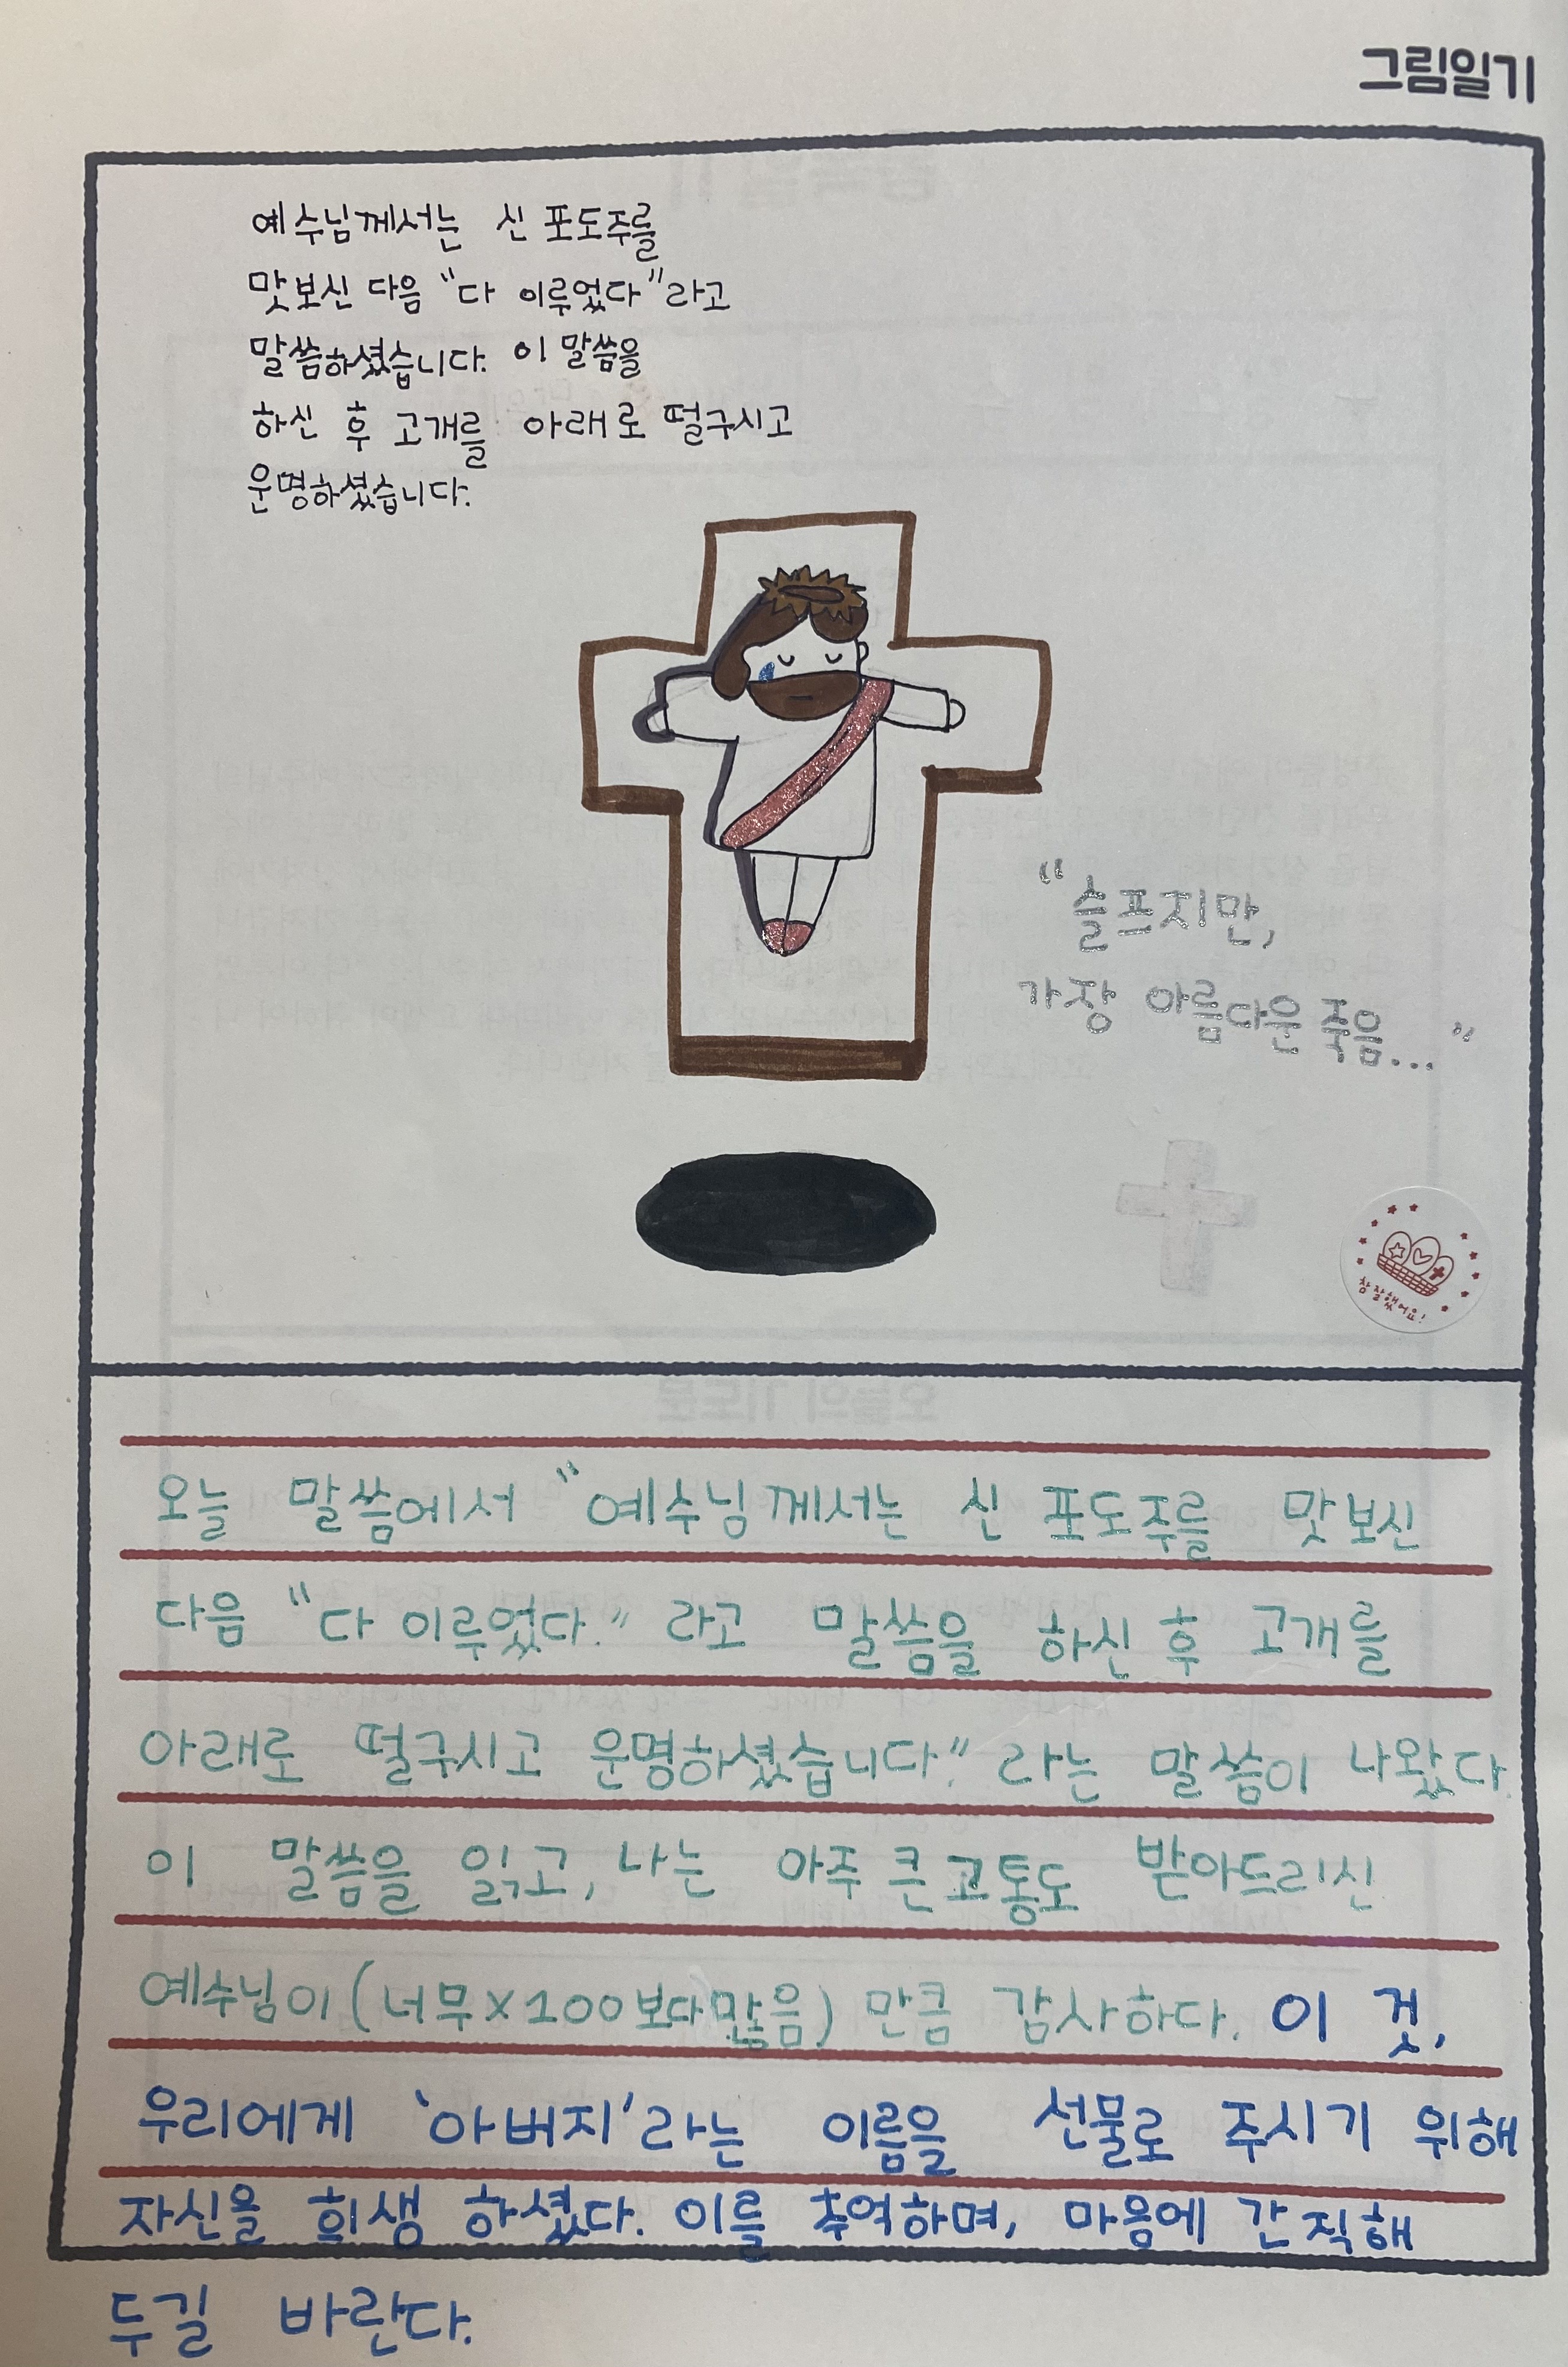 그림일기
예수님께서는 신 포도주를
맛보신 다음 "다 이루었다"라고
말씀하셨습니다. 이 말씀을
하신 후 고개를 아래로 떨구시고
운명하셨습니다.
"슬프지만,
가장 아름다운 죽음..."
참 잘했어요!
오늘 말씀에서 "예수님께서는 신 포도주를 맛보신
다음 "다 이루었다." 라고 말씀을 하신 후 고개를
아래로 떨구시고 운명하셨습니다." 라는 말씀이 나왔다.
이 말씀을 읽고, 나는 아주 큰 고통도 받아드리신
예수님이 (너무×100보다 많음) 만큼 감사하다. 이 것,
우리에게 '아버지'라는 이름을 선물로 주시기 위해
자신을 희생 하셨다. 이를 추억하며, 마음에 간직해
두길 바란다.